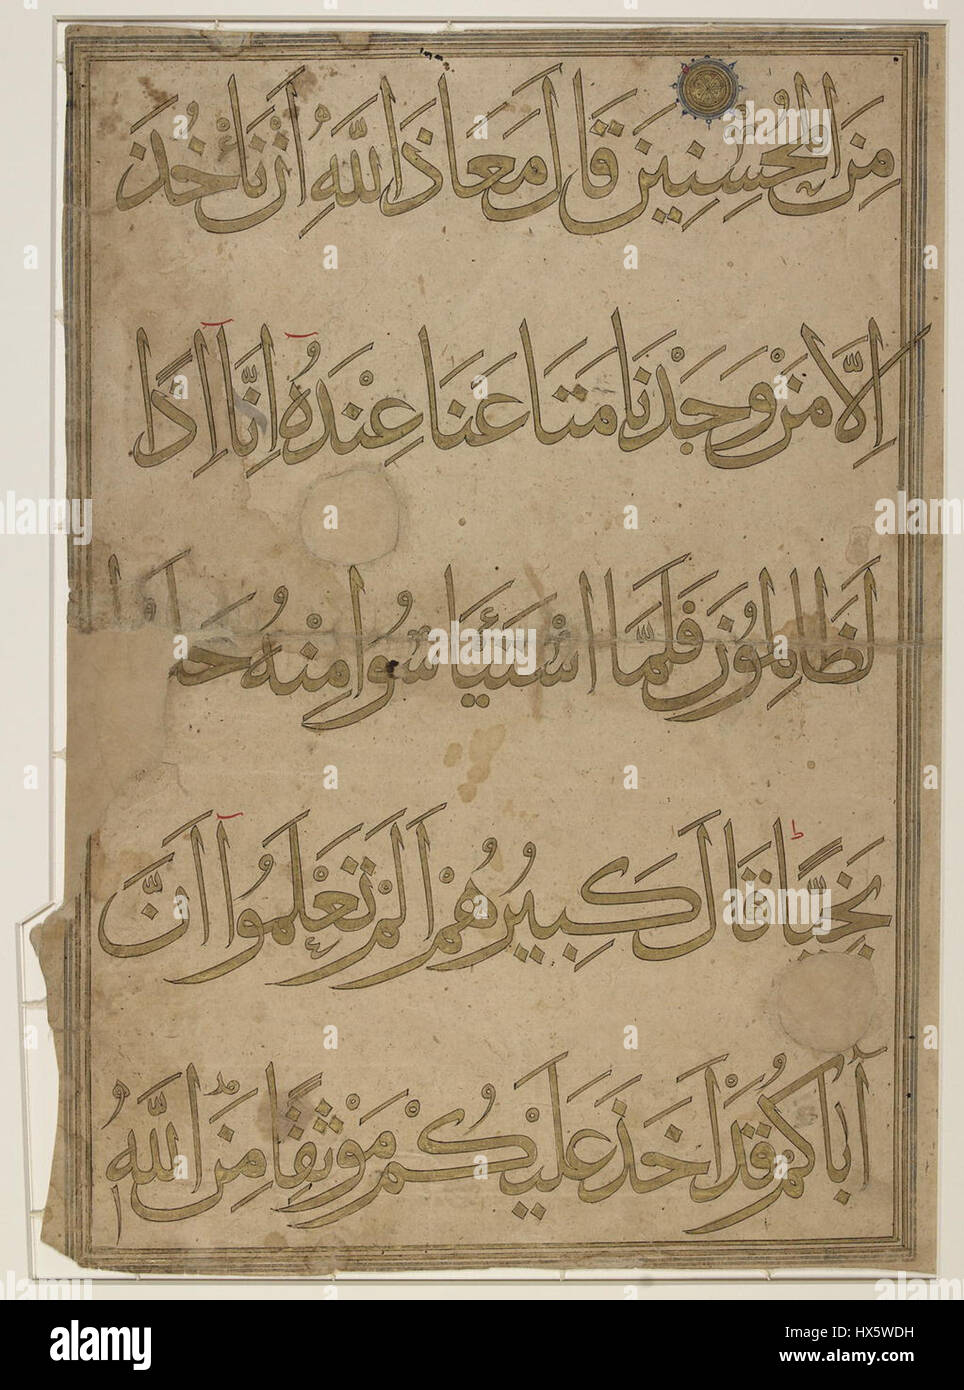 مِنَ الْمُحْسِنِينَ قَالَ مَعَاذَ اللَّهِ أَنْ نَأْخُذَ
إِلَّا مَنْ وَجَدْنَا مَتَاعَنَا عِنْدَهُ إِنَّا إِذًا
لَظَالِمُونَ فَلَمَّا اسْتَيْأَسُوا مِنْهُ خَلَصُوا
نَجِيًّا قَالَ كَبِيرُهُمْ أَلَمْ تَعْلَمُوا أَنَّ
أَبَاكُمْ قَدْ أَخَذَ عَلَيْكُمْ مَوْثِقًا مِنَ اللَّهِ
a alamy stock photo
HX5WDH
www.alamy.com